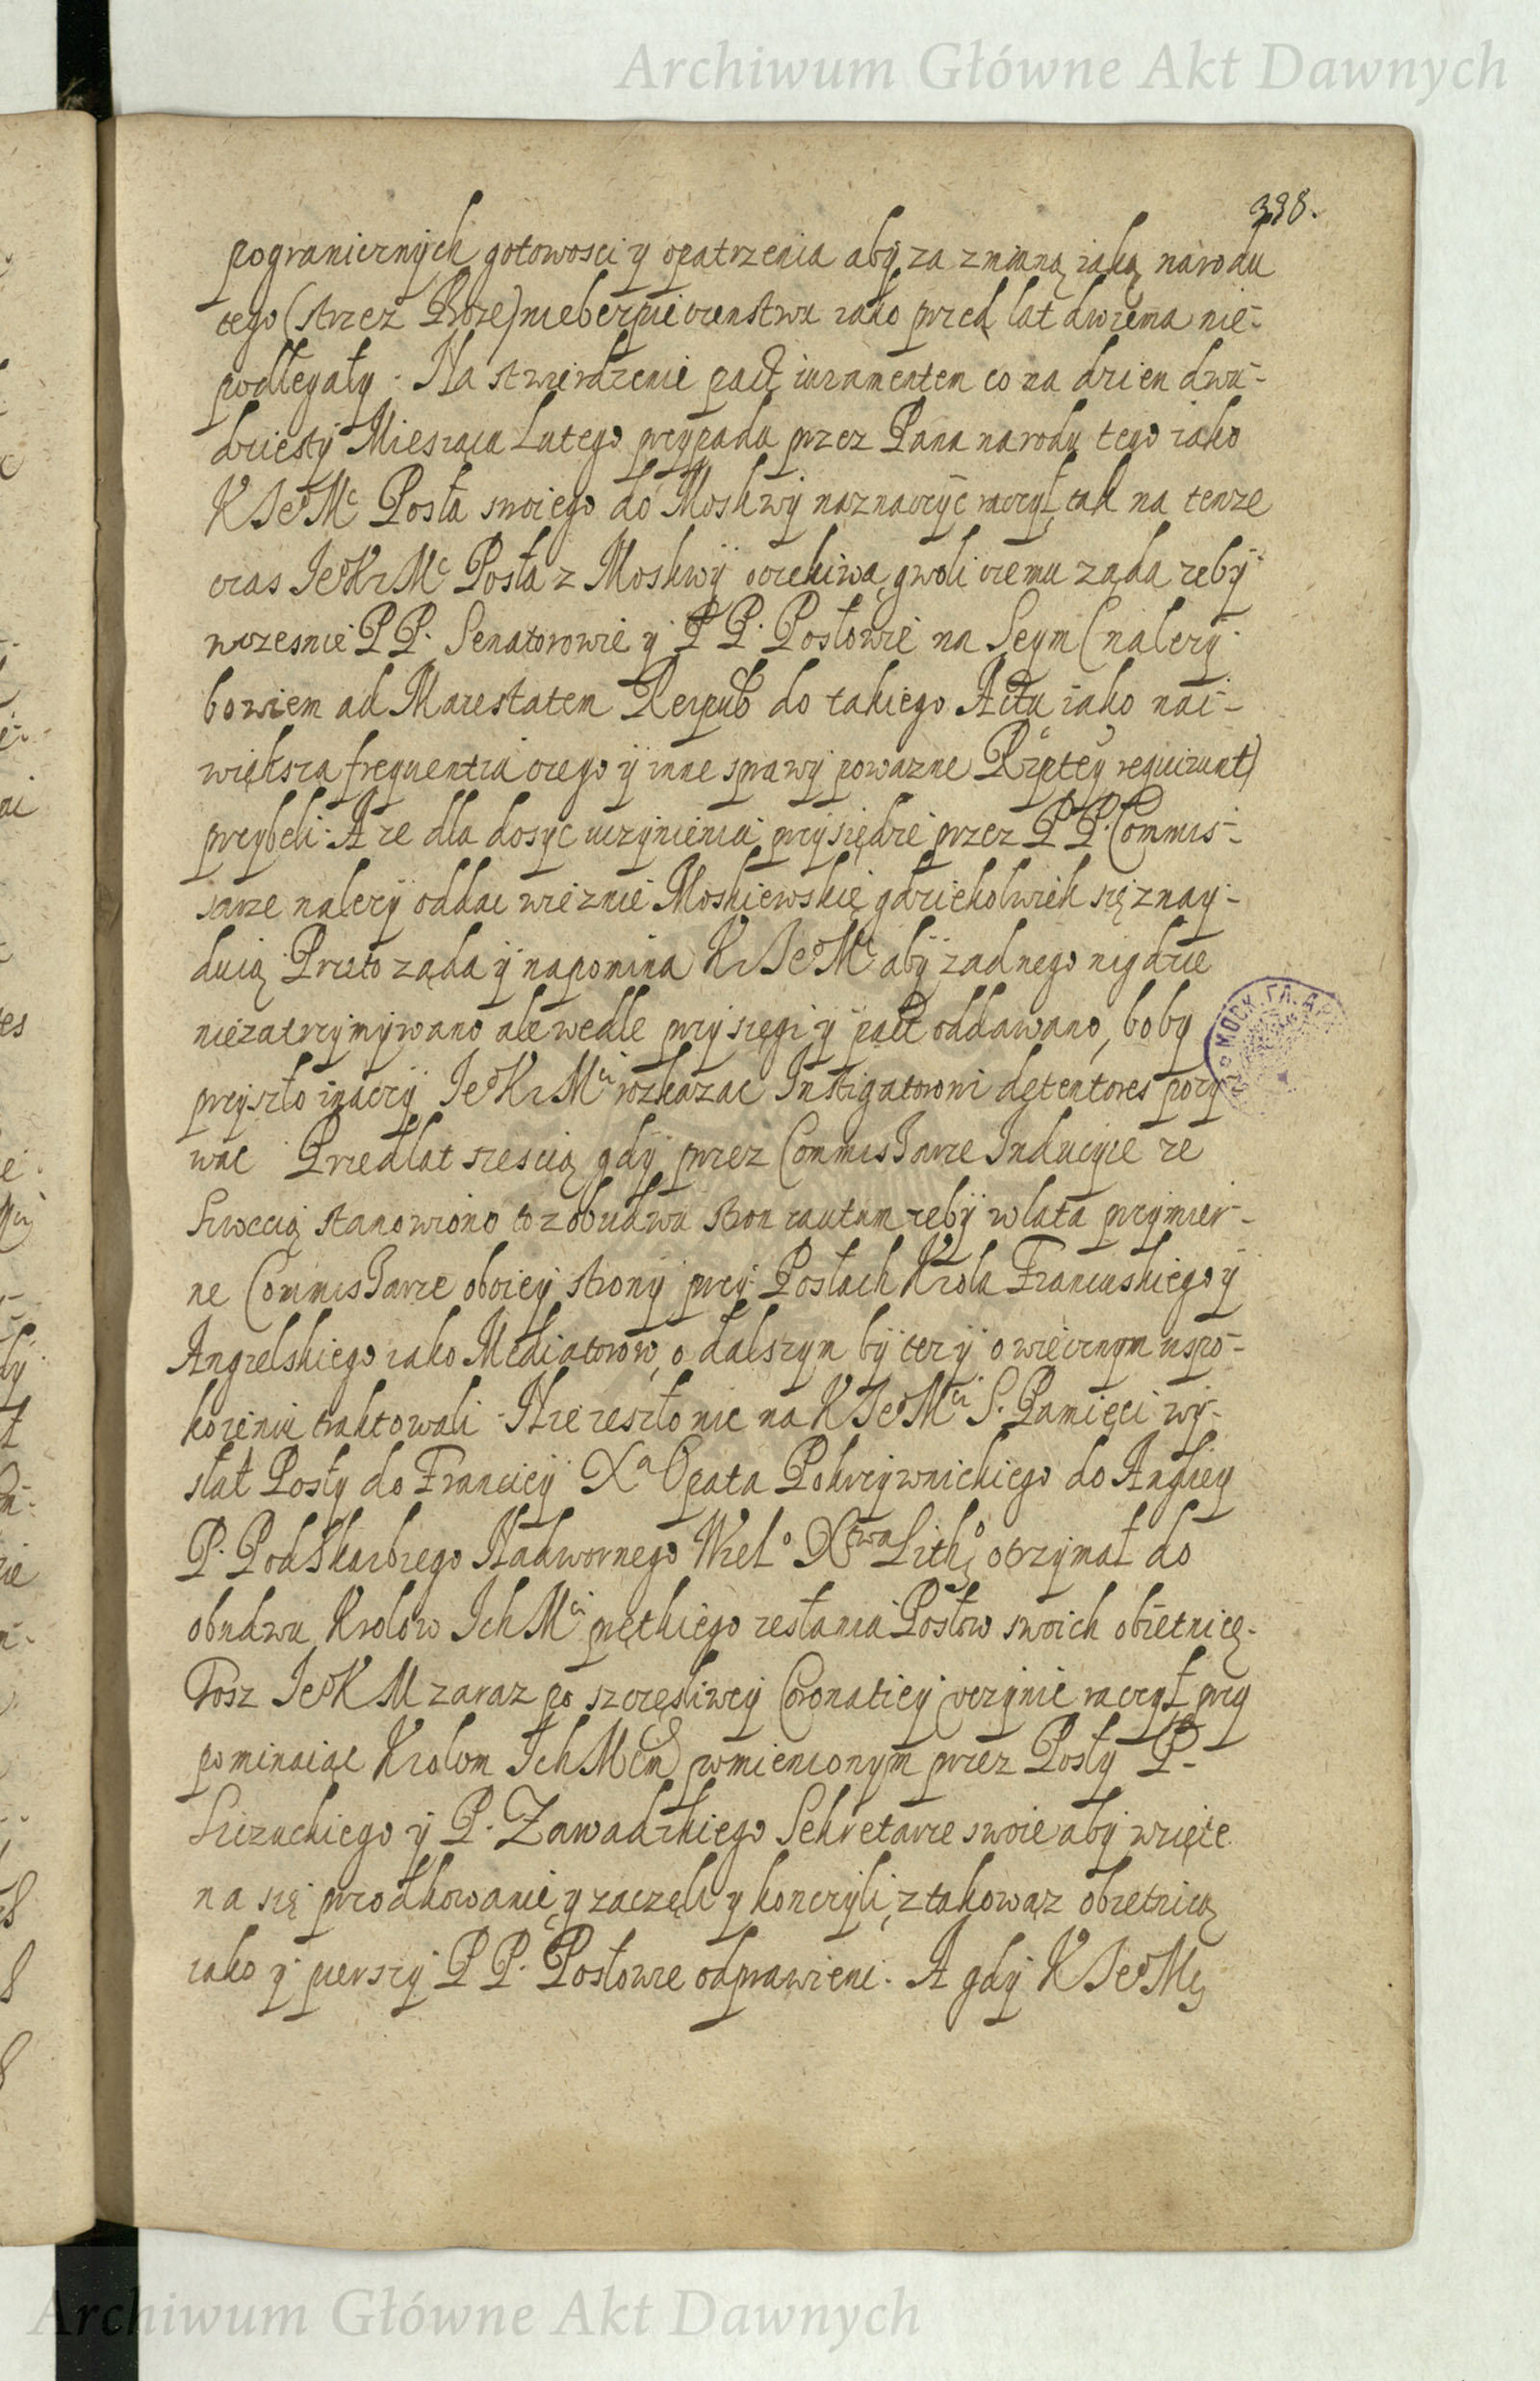 Archiwum Główne Akt Dawnych
338.
pogranicznych gotowosci y opatrzenia aby za zmianą iaką narodu
tego (strzez Boze) niebezpieczenstwu iako przed lat dwiema nie-
podlegały. Na stwierdzenie pact iuramentem co na dzien dwu-
dziesty Miesiąca Lutego przypada przez Pana narodu tego iako
K Jeo Mc Posła swoiego do Moskwy naznaczyć raczył tak na tenze
czas Jeo Kr Mc Posła z Moskwy oczekiwa, gwoli czemu ząda zeby
wczesnie PP. Senatorowie y PP. Posłowie na Seym (nalezy
bowiem ad Maiestatem Reipub do takiego Actu iako nai-
większa frequentia czego y inne sprawy powazne Rzptey requirunt)
przybeli. A ze dla dosyc uczynienia przysiędze przez PP. Commis-
sarze nalezy oddac więznie Moskiewskię gdziekolwiek się znay-
duią Przeto ząda y napomina Kr Jeo Mc aby zadnego nigdzie
niezatrzymywano ale wedle przysięgi y pact oddawano, bo by
przyszło inaczy Jeo Kr Mci rozkazac Instigatorowi detentores pozy
wac Przedlat szescią gdy przez Commissarze Inducyie ze
Szwecią stanowiono to z obudwu stron cautum zeby w lata przymier-
ne Commissarze oboiey strony przy Posłach Krola Francuskiego y
Angielskiego iako Mediatorow, o dalszym by tez y o wiecznym uspo-
koieniu traktowali. Nie zeszło nic na K Jeo Mci S. Pamięci wy-
słał Posły do Francyey Xa Opata Pokrzywnickiego do Angliey
P. Podskarbiego Nadwornego Wielo Xtwa Litho otrzymał do
obudwu Krolow Ich Mci prętkiego zesłania Posłow swoich obietnicę.
Tosz Jeo K M zaraz po szczęśliwey Coronatiey uczynic raczył przy
pominaiąc Krolom Ich Mcm pomienionym przez Posły P.
y P. Zawadzkiego Sekretarze swoie aby wzięte
na się prodkowanie y zaczęli y konczyli, z takowąz obietnicą
iako y pierszy PP. Posłowie odprawieni. A gdy K Jeo Mc
МОСК. ГЛ. АР
Archiwum Główne Akt Dawnych